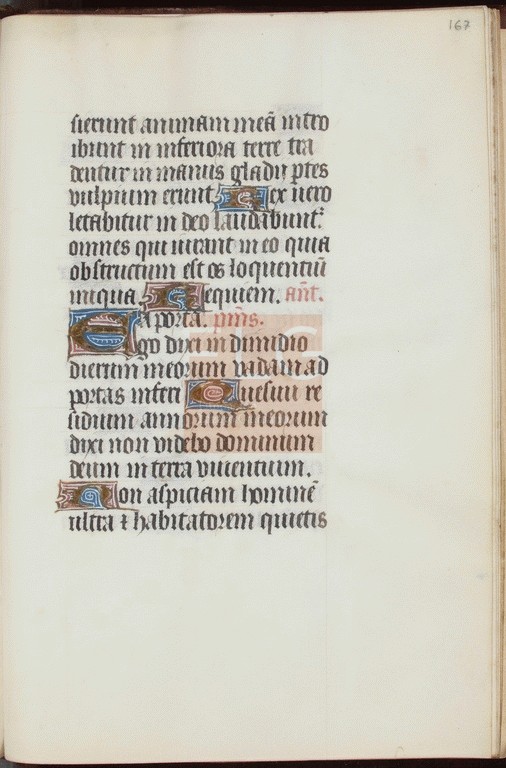 167
sierunt animam meā intro
ibunt in inferiora terre tra
dentur in manus gladii ptes
vulpium erunt Rex uero
letabitur in deo laudabunt̄
omnes qui iurant in eo quia
obstructum est os loquentiū
iniqua. Requiem. añt.
A porta. p̄ms.
Ego dixi in dimidio
dierum meorum vadam ad
portas inferi Quesiui re
siduum annorum meorum
dixi non videbo dominum
deum in terra viuentium.
Non aspiciam hominē
ultra ⁊ habitatorem quietis